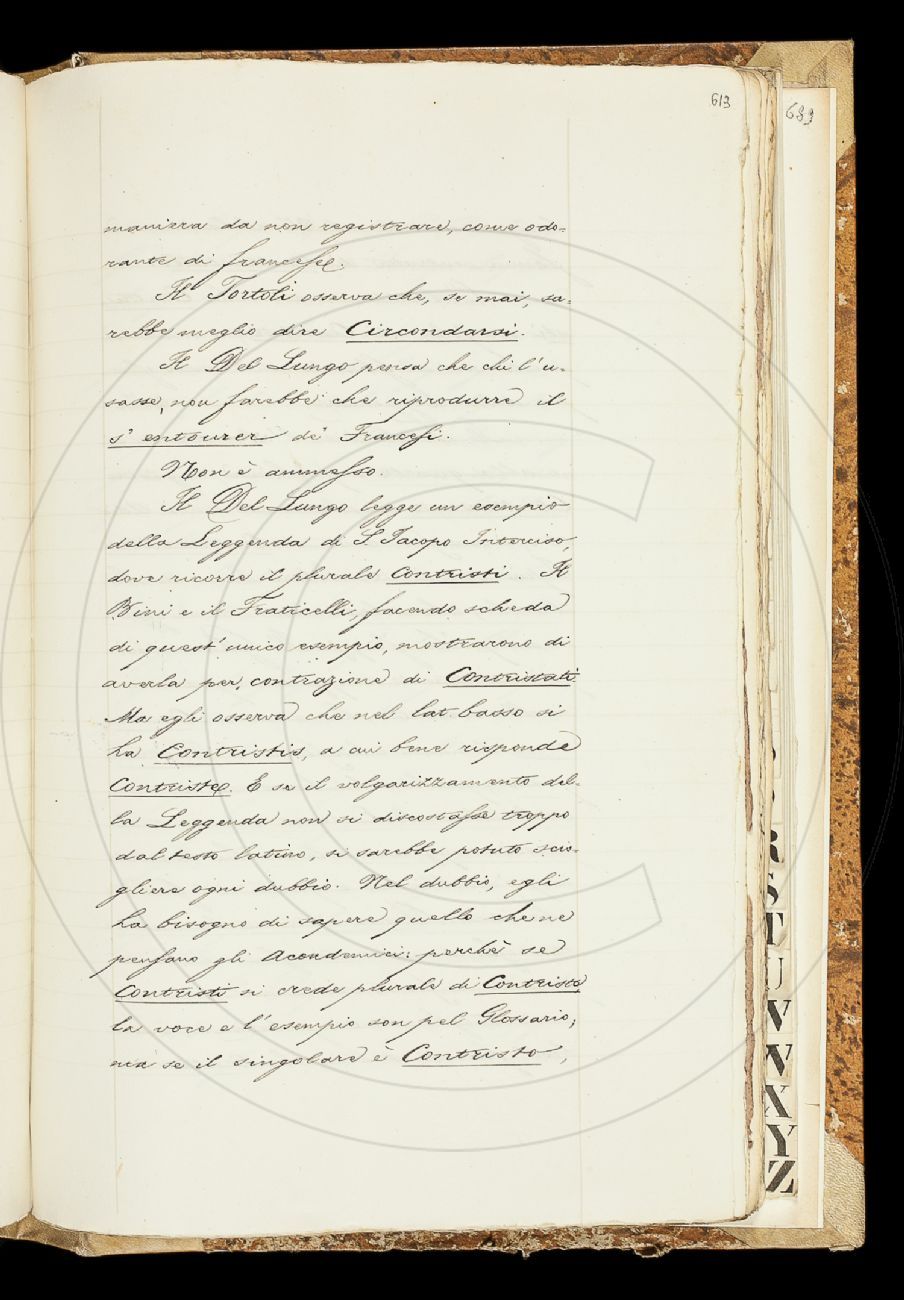 613
689
maniera da non registrare, come odo-
rante di francese.
Il Tortoli osserva che, se mai, sa-
rebbe meglio dire Circondarsi.
Il Del Lungo pensa che chi l'u-
sasse, non farebbe che riprodurre il
s'entourer de' Francesi.
Non è ammesso.
Il Del Lungo legge un esempio
della Leggenda di S. Jacopo Interciso,
dove ricorre il plurale Contristi. Il
Bini e il Fraticelli, facendo scheda
di quest'unico esempio, mostrarono di
averla per contrazione di Contristati
Ma egli osserva che nel lat. basso si
ha Contristis, a cui bene risponde
Contriste. E se il volgarizzamento del-
la Leggenda non si discostasse troppo
dal testo latino, si sarebbe potuto scio-
gliere ogni dubbio. Nel dubbio, egli
ha bisogno di sapere quello che ne
pensano gli Accademici: perchè se
Contristi si crede plurale di Contriste
la voce e l'esempio son pel Glossario;
ma se il singolare è Contristo,
R
S
T
U
V
W
X
Y
Z